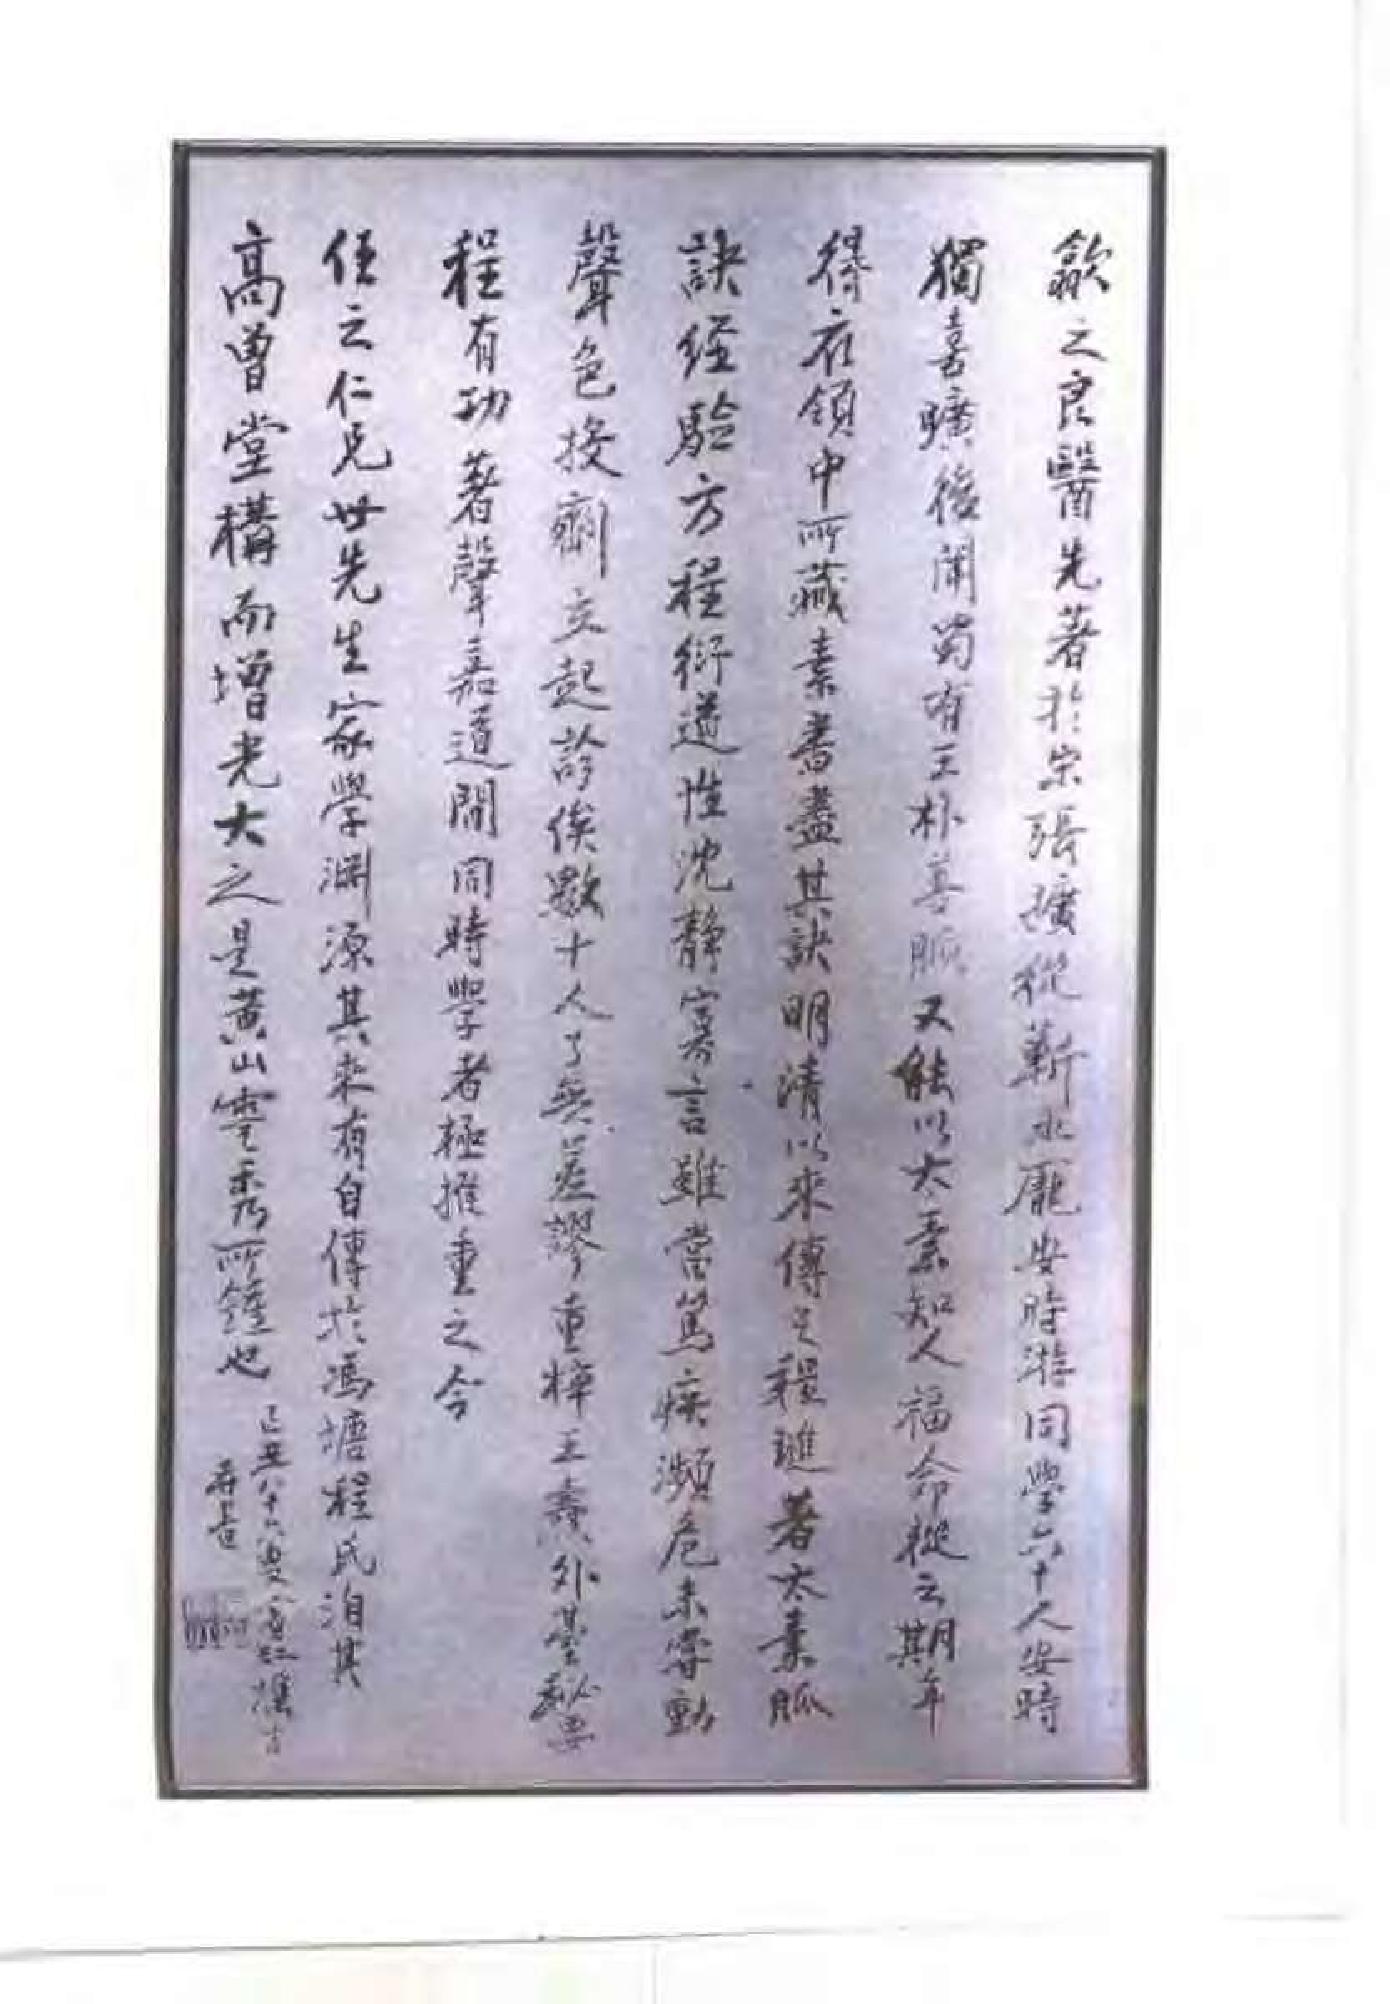 歙之良醫先著於宗張擴從蘄水龐安時游同學六十人安時
獨喜曠後聞蜀有王朴善脈又能以太素知人福命從之期年
得衣領中所藏素書盡其訣明清以來傳之程琎著太素脈
訣經驗方程衍道性沈靜寡言雖當篤疾瀕危未嘗動
聲色投劑立起診候數十人了無差謬重梓王燾外臺秘要
程有功著聲嘉道間同時學者極推重之今
任之仁兄世先生家學淵源其來有自傳於馮塘程氏洎其
高曾堂構而增光大之是黃山靈秀所鍾也
己丑八十六叟黃賓虹